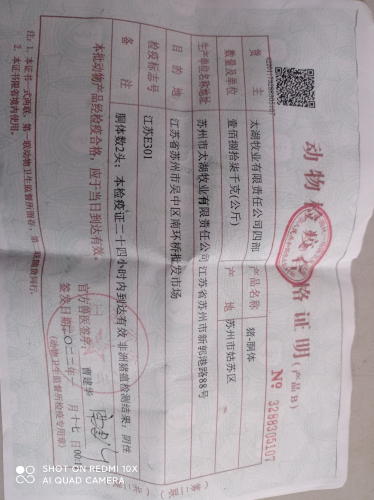 动物检疫合格证明(产品B)
№ 3288305107
货主 太湖牧业有限责任公司四部 产品名称 猪-胴体
数量及单位 壹佰捌拾柒千克(公斤) 产地 苏州市姑苏区
生产单位名称地址 苏州市太湖牧业有限责任公司江苏省苏州市新郭港路88号
目的地 江苏省苏州市吴中区南环桥批发市场
检疫标志号 江苏E301
备注 胴体数2头;本检疫证二十四小时内到达有效 非洲猪瘟检测结果:阴性
本批动物产品经检疫合格,应于当日到达有效。
官方兽医签字: 曹建华
签发日期:
(动物卫生监督所检疫专用章)
注:1. 本证书一式两联,第一联动物卫生监督所留存,第二联随货同行。
2. 本证书限省境内使用。
SHOT ON REDMI 10X
AI QUAD CAMERA